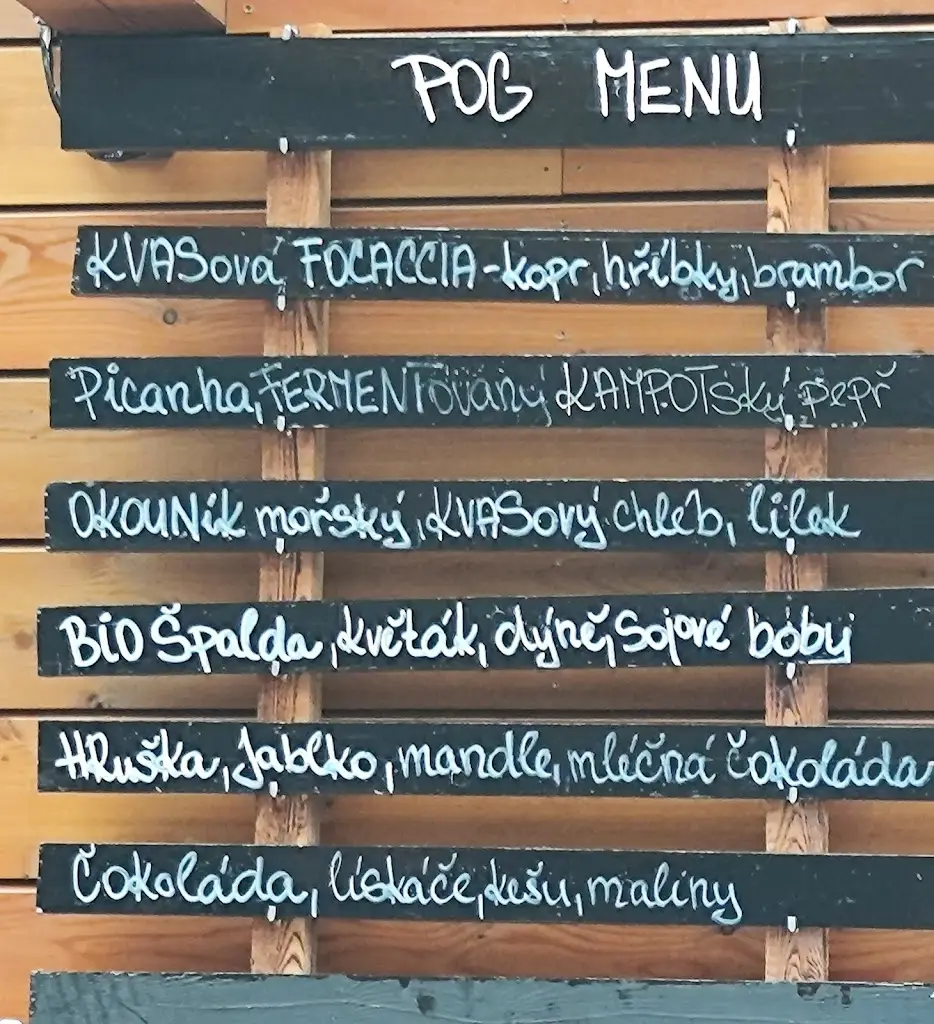 POG MENU
KVASová FOCACCIA - kopr, hříbky, brambor
Picanha, FERMENTovaný KAMPOTský pepř
OKOUNík mořský, KVASový chleb, lilek
BiO Špalda, květák, dýně, Sojové boby
HRuška, Jablko, mandle, mléčná čokoláda
Čokoláda, lískáče, kešu, maliny